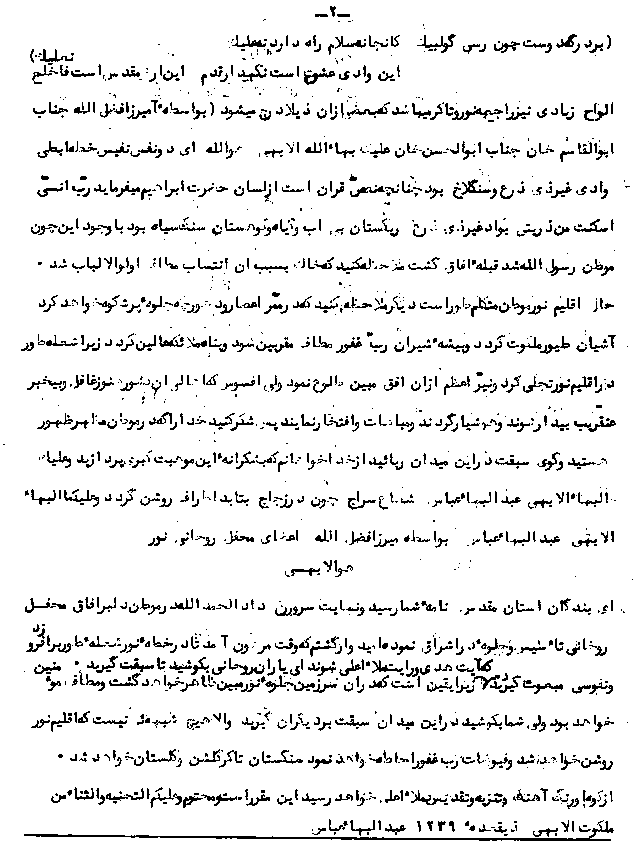 — ٢ —
(بر درگه دوست چون رسی گو لبیك کانجا نه سلام راه دارد نه علیك
این وادی عشق است نگهدار قدم این ارض مقدس است فاخلع نعلیك)
الواح زیادی نیز راجع بنور و تاکر میباشد که بعضی از ان ذیلا درج میشود (بواسطه آمیرزا فضل الله جناب
ابوالقاسم خان جناب ابوالحسن خان علیك بهاء الله الابهی هوالله ای دو نفس نفیس خطه ابطحی
وادی غیر ذی ذرع و سنگلاخ بود چنانچه نص قران است از لسان حضرت ابراهیم میفرماید رب انی
اسکنت من ذریتی بواد غیر ذی ذرع ریگستان بی اب و گیاه و کوهستان سنگ سیاه بود با وجود این چون
موطن رسول الله شد قبله افاق گشت ملاحظه کنید که خاك بسبب ان انتساب مطاف اولوالالباب شد ۰
حال اقلیم نور موطن مکلم طور است دیگر ملاحظه کنید که در ممر اعصار و دهور چه جلوه پر شکوه خواهد کرد
آشیان طیور ملکوت گردد و بیشه شیران رب غفور مطاف مقربین شود و پناه ملائکه عالین گردد زیرا شعله طور
در اقلیم نور تجلی کرد و نیر اعظم از ان افق مبین طلوع نمود ولی افسوس که اهالی ان کشور هنوز غافل و بیخبر
عنقریب بیدار شوند و هوشیار گردند و مباهات و افتخار نمایند پس شکر کنید خدا را که در موطن مظهر ظهور
هستید و گوی سبقت در این میدان ربائید از خدا خواهانم که بشکرانه این موهبت کبری پردازید و علیك
البهاء الابهی عبدالبهاء عباس شعاع سراج چون در زجاج بتابد اطراف روشن گردد و علیکما البهاء
الابهی عبدالبهاء عباس بواسطه میرزا فضل الله اعضای محفل روحانی نور
هوالابهی
ای بندگان استان مقدس نامه شما رسید و نهایت سرور رخ داد الحمد لله در موطن دلبر افاق محفل
روحانی تاسیس و جلوه در اشراق نموده امید وار گشتم که وقت مرهون آمد تا در خطه نور شعله طور بر افروزد
و نفوسی مبعوث گردند که آیت هدی و رایت ملاء اعلی شوند ای یاران روحانی بکوشید تا سبقت گیرید ۰
زیرا یقین است که در ان سرزمین جلوه نور مبین ظاهر خواهد گشت و مطاف مومنین
خواهد بود ولی شما بکوشید در این میدان سبقت بر دیگران گیرید والا هیچ شبهه نیست که اقلیم نور
روشن خواهد شد و فیوضات رب غفور احاطه خواهد نمود سنگستان تاکر گلشن و گلستان خواهد شد ۰
از کوه اورنگ آهنگ و تنزیه و تقدیس بملاء اعلی خواهد رسید این مقرر است و محتوم و علیکم التحیه والثناء من
ملکوت الابهی ذیقعده ۱۳۳۹ عبدالبهاء عباس